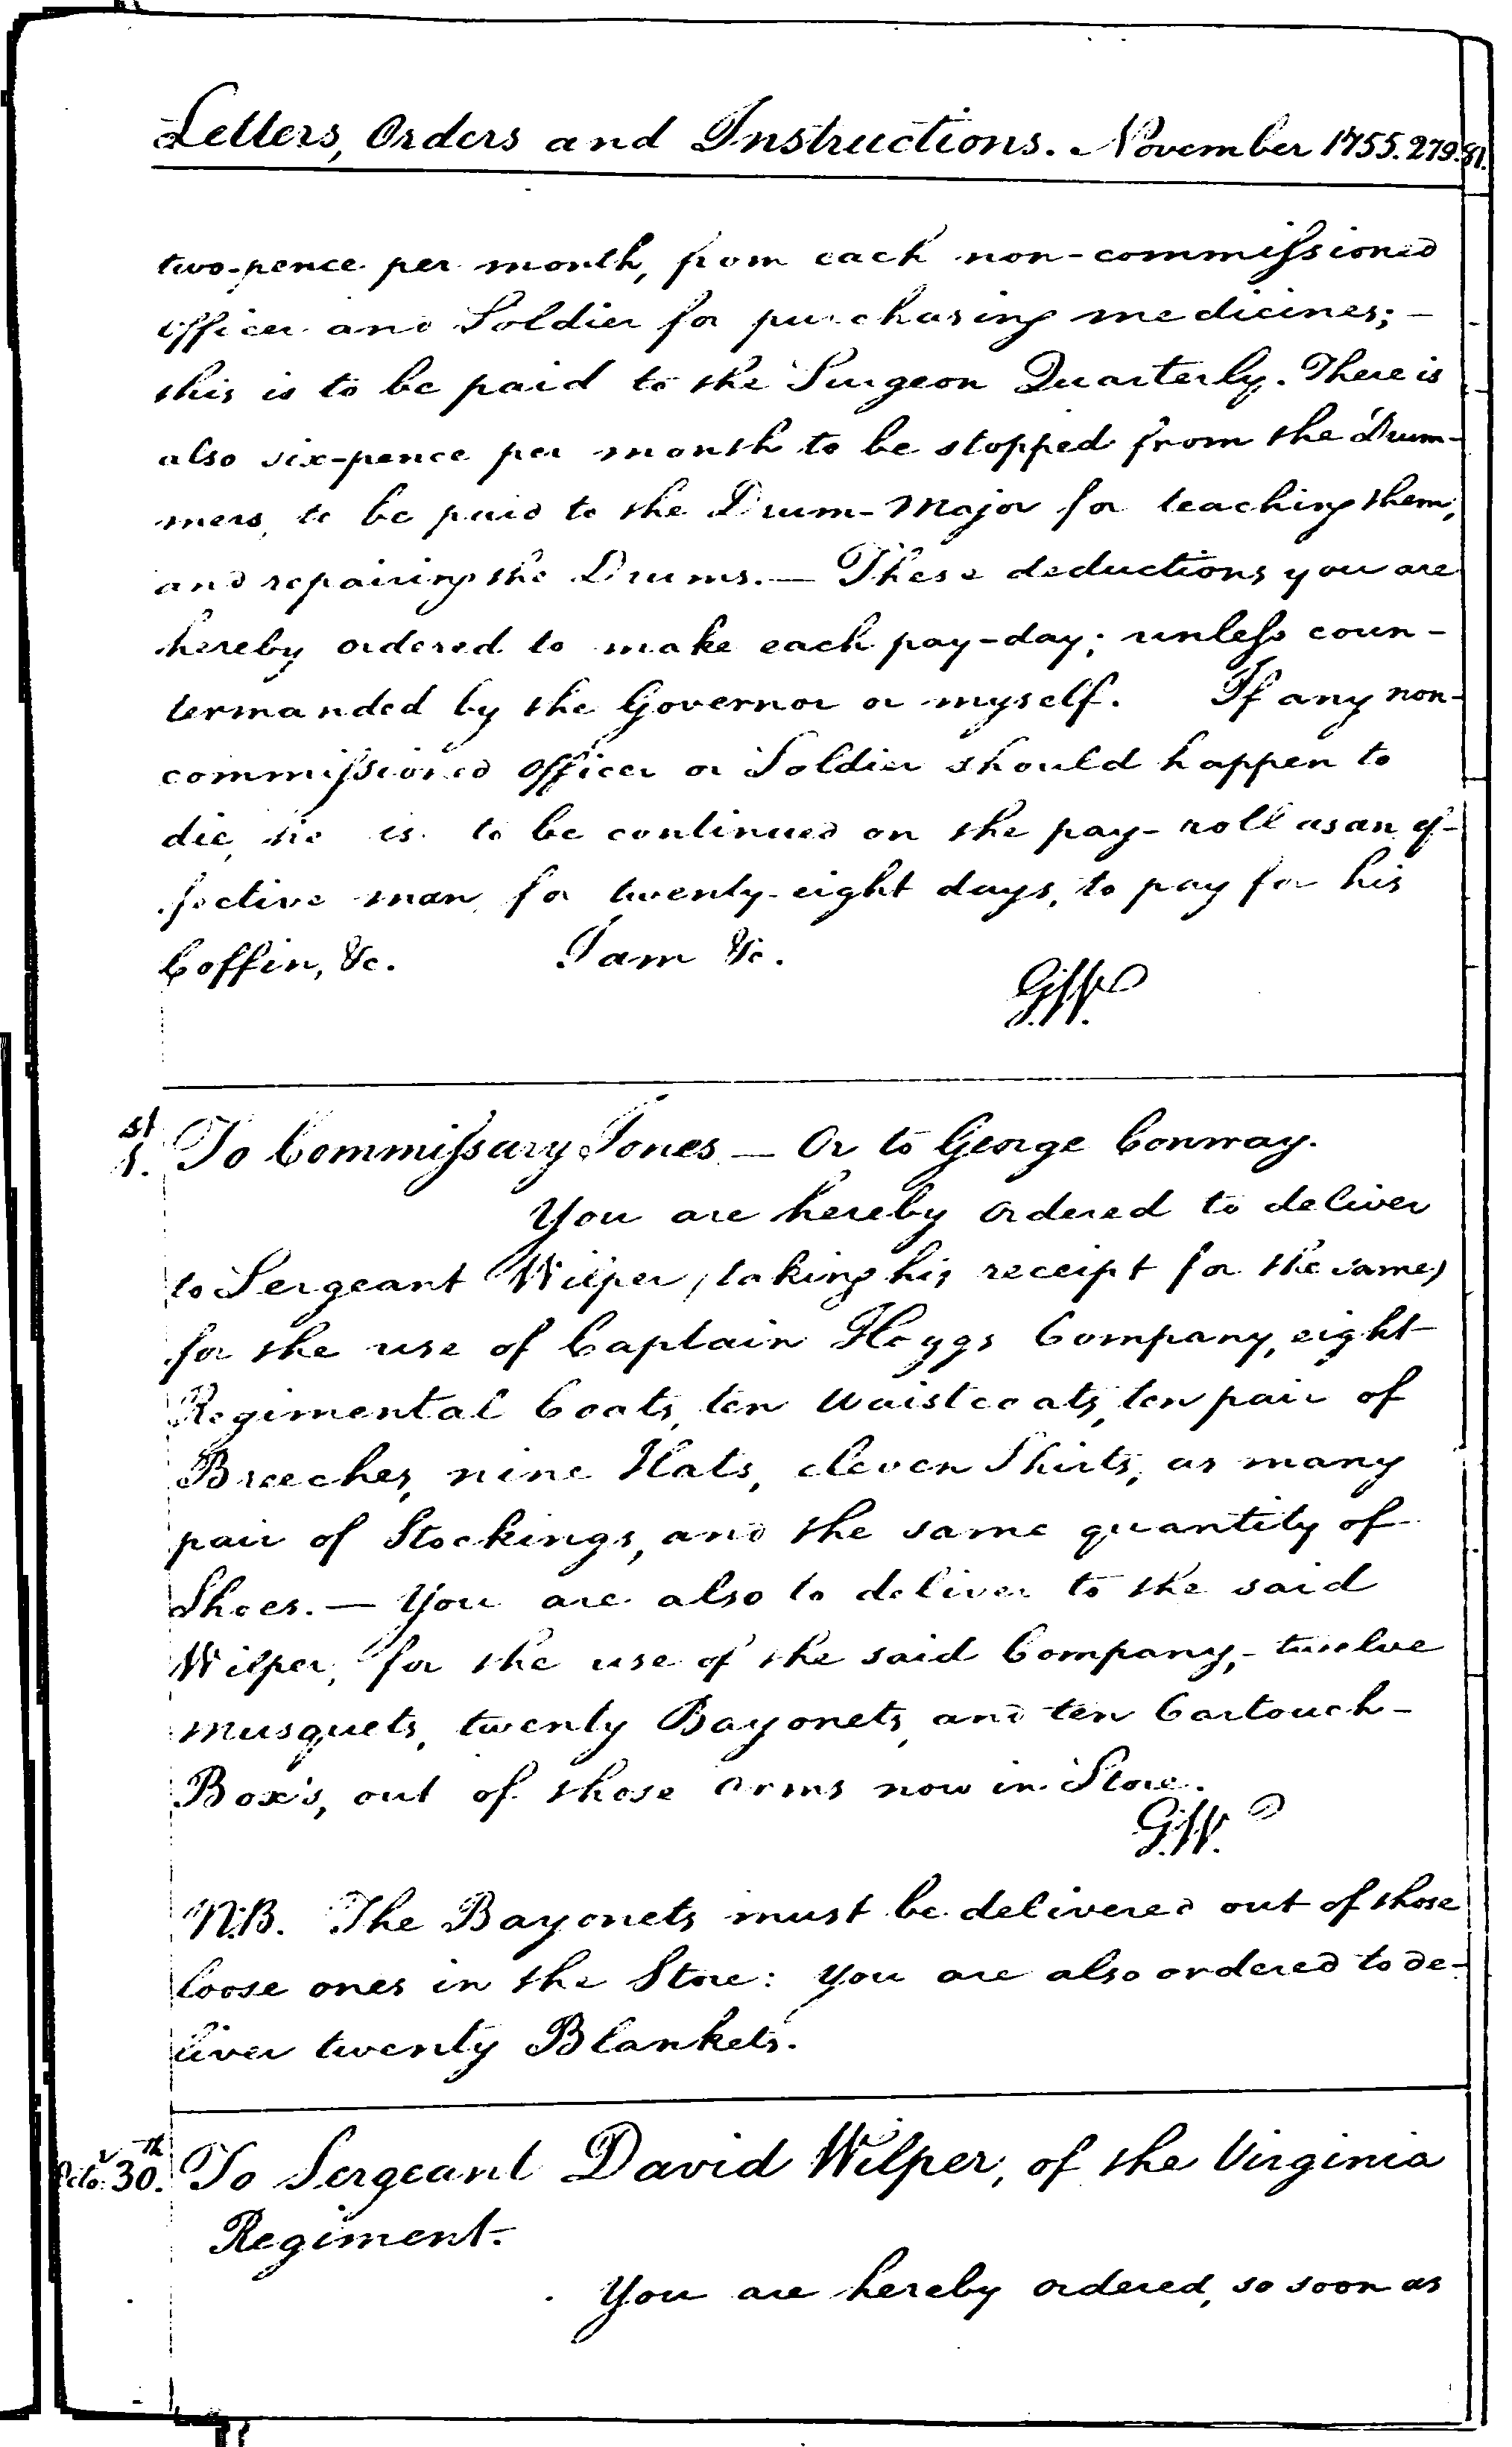 Letters, Orders and Instructions. November 1755. 279. 81.
two-pence per month, from each non-commissioned
officer and Soldier for purchasing medicines; —
this is to be paid to the Surgeon Quarterly. There is
also six-pence per month to be stopped from the Drum-
mers, to be paid to the Drum-Major for teaching them,
and repairing the Drums. — These deductions you are
hereby ordered to make each pay-day; unless coun-
termanded by the Governor or myself. If any non-
commissioned officer or Soldier should happen to
die, he is to be continued on the pay-roll as an ef-
fective man, for twenty-eight days, to pay for his
Coffin, &c. I am &c.
G:W.
1.st To Commissary Jones — Or to George Conway.
You are hereby ordered to deliver
to Sergeant Wilper, (taking his receipt for the same)
for the use of Captain Hoggs Company, eight
Regimental Coats, ten Waistcoats, ten pair of
Breeches, nine Hats, eleven Shirts, as many
pair of Stockings, and the same quantity of
Shoes. — You are also to deliver to the said
Wilper, for the use of the said Company, - twelve
musquets, twenty Bayonets, and ten Cartouch-
Box's, out of those arms now in Store.
G:W.
N.B. The Bayonets must be delivered out of those
loose ones in the Store: You are also ordered to de-
liver twenty Blankets.
Octo. 30.th To Sergeant David Wilper, of the Virginia
Regiment.
You are hereby ordered, so soon as